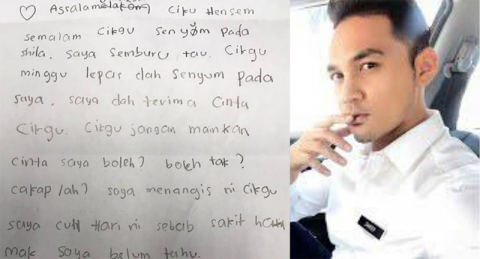 ♡ Assalamualaikom Ciku Hensem
semalam Cikgu senyom pada
shila. saya semburu tau. Cikgu
minggu lepas dah senyum pada
saya. saya dah terima cinta
Cikgu. Cikgu jangan mainkan
cinta saya boleh? boleh tak?
cakap lah? saya menangis ni cikgu
saya cuti Hari ni sebab sakit
mak saya belum tahu.